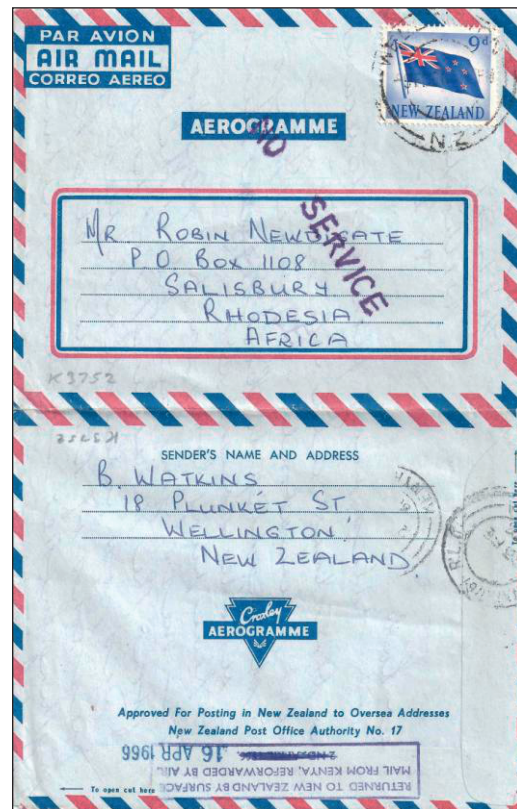 PAR AVION
AIR MAIL
CORREO AEREO
9d
NEW ZEALAND
N.Z
AEROGRAMME
NO
SERVICE
MR ROBIN NEWDIGATE
P.O BOX 1108
SALISBURY
RHODESIA
AFRICA
K3752
K3752
SENDER'S NAME AND ADDRESS
B. WATKINS
18 PLUNKET ST
WELLINGTON
NEW ZEALAND
Croxley
AEROGRAMME
Approved For Posting in New Zealand to Oversea Addresses
New Zealand Post Office Authority No. 17
RETURNED TO NEW ZEALAND BY SURFACE
MAIL FROM KENYA, REFORWARDED BY AIR
16 APR 1966
To open cut here